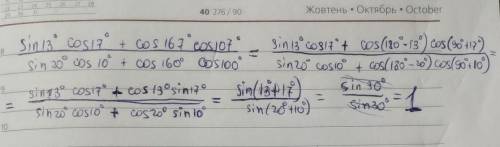 40 276 / 90 Жовтень • Октябрь • October
sin13° cos17° + cos167° cos107° / sin20° cos10° + cos160° cos100° = sin13° cos17° + cos(180°-13°) cos(90°+17°) / sin20° cos10° + cos(180°-20°) cos(90°+10°) =
= sin13° cos17° + cos13° sin17° / sin20° cos10° + cos20° sin10° = sin(13°+17°) / sin(20°+10°) = sin30° / sin30° = 1
10